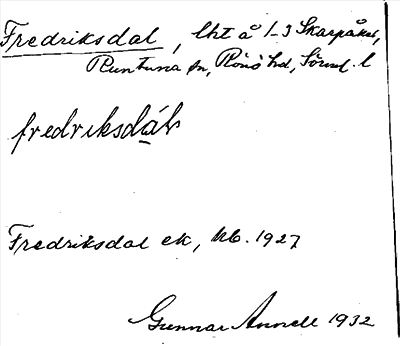 Fredriksdal, lht å 1-3 Skarpåker,
Runtuna sn, Rönö hd, Söuml. l
fredriksdáls
Fredriksdal ek, kb. 1927
Gunnar Annell 1932